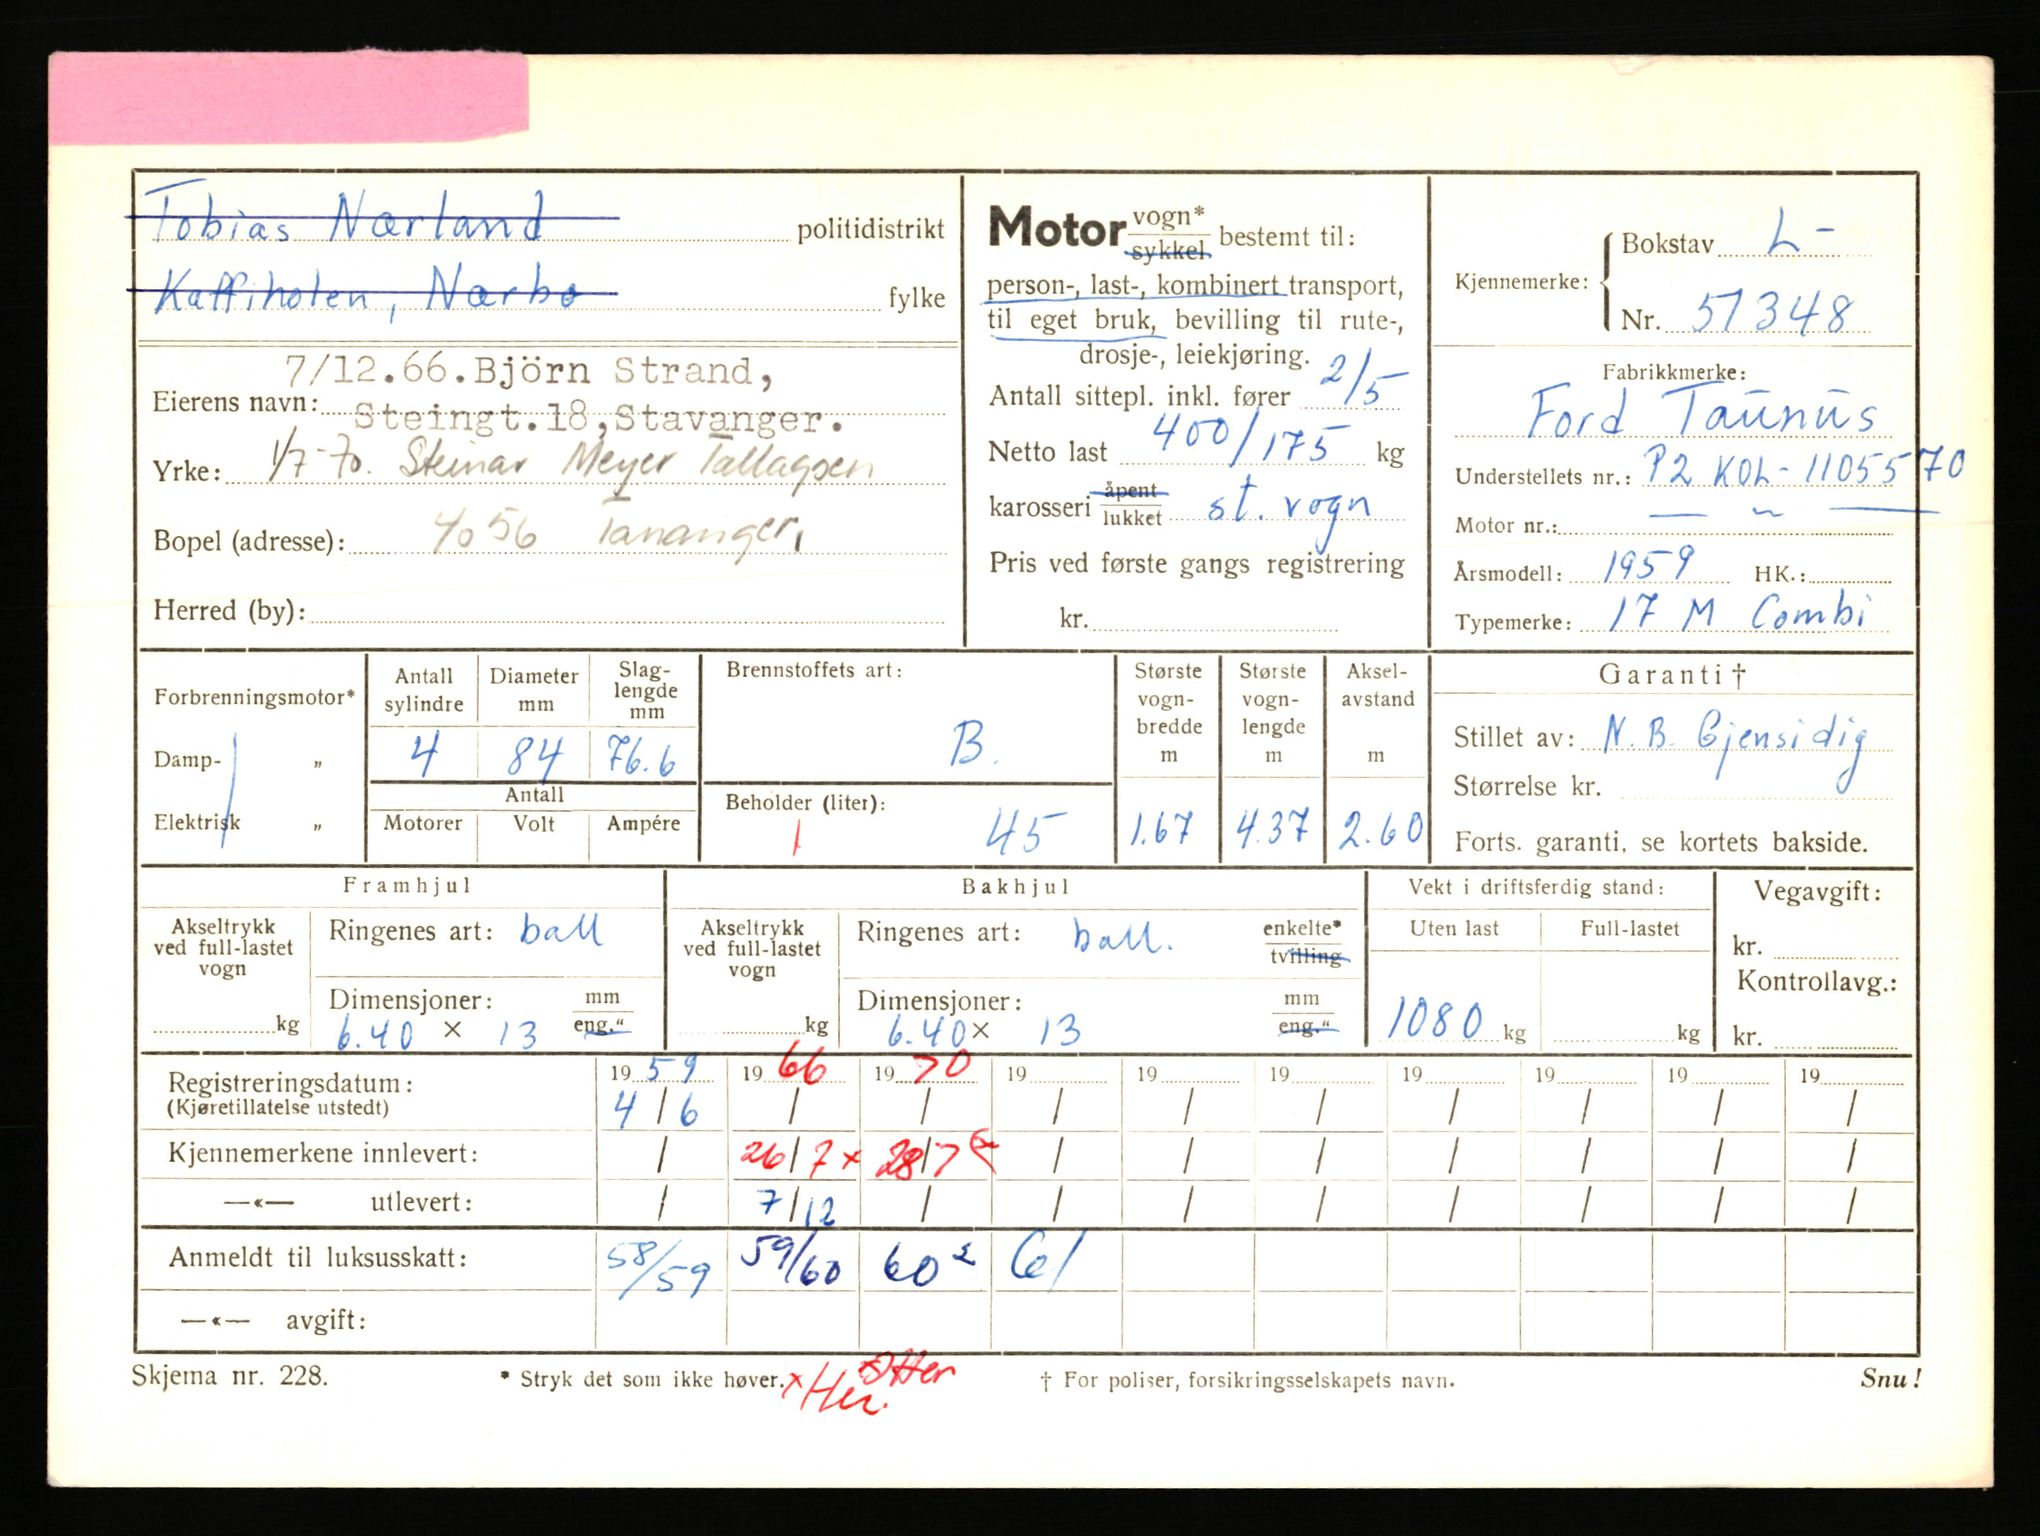 Tobias Nærland politidistrikt
Kaffiholen, Nærbø fylke
7/12.66. Björn Strand,
Eierens navn: Steingt. 18, Stavanger.
Yrke: 1/7-70. Steinar Meyer Tallagsen
Bopel (adresse): 4056 Tananger,
Herred (by):
Motor vogn* sykkel bestemt til:
person-, last-, kombinert transport,
til eget bruk, bevilling til rute-,
drosje-, leiekjøring.
Antall sittepl. inkl. fører 2/5
Netto last 400/175 kg
karosseri åpent lukket st. vogn
Pris ved første gangs registrering
kr.
Kjennemerke: Bokstav L-
Nr. 51348
Fabrikkmerke:
Ford Taunus
Understellets nr.: P2 KOL-1105570
Motor nr.: — „ —
Årsmodell: 1959 HK.:
Typemerke: 17 M Combi
Forbrenningsmotor*
Damp- „
Elektrisk „
Antall sylindre
4
Diameter mm
84
Slag-lengde mm
76.6
Antall
Motorer Volt Ampére
Brennstoffets art:
B.
Beholder (liter):
45
Største vogn-bredde m
1.67
Største vogn-lengde m
4.37
Aksel-avstand m
2.60
Garanti †
Stillet av: N.B. Gjensidig
Størrelse kr.
Forts. garanti, se kortets bakside.
Framhjul
Akseltrykk ved full-lastet vogn
kg
Ringenes art: ball
Dimensjoner: mm eng."
6.40 × 13
Bakhjul
Akseltrykk ved full-lastet vogn
kg
Ringenes art: ball. enkelte* tvilling
Dimensjoner: mm eng."
6.40 × 13
Vekt i driftsferdig stand:
Uten last Full-lastet
1080 kg kg
Vegavgift:
kr.
Kontrollavg.:
kr.
Registreringsdatum: 19 59 19 66 19 70 19 19 19 19 19 19 19
(Kjøretillatelse utstedt) 4/6 / / / / / / / / /
Kjennemerkene innlevert: / 26/7 × 28/7 / / / / / / /
—«— utlevert: / 7/12 / / / / / / / /
Anmeldt til luksusskatt: 58/59 59/60 60 2 61
—«— avgift:
Skjema nr. 228. * Stryk det som ikke høver. × Her. † For poliser, forsikringsselskapets navn. Snu!